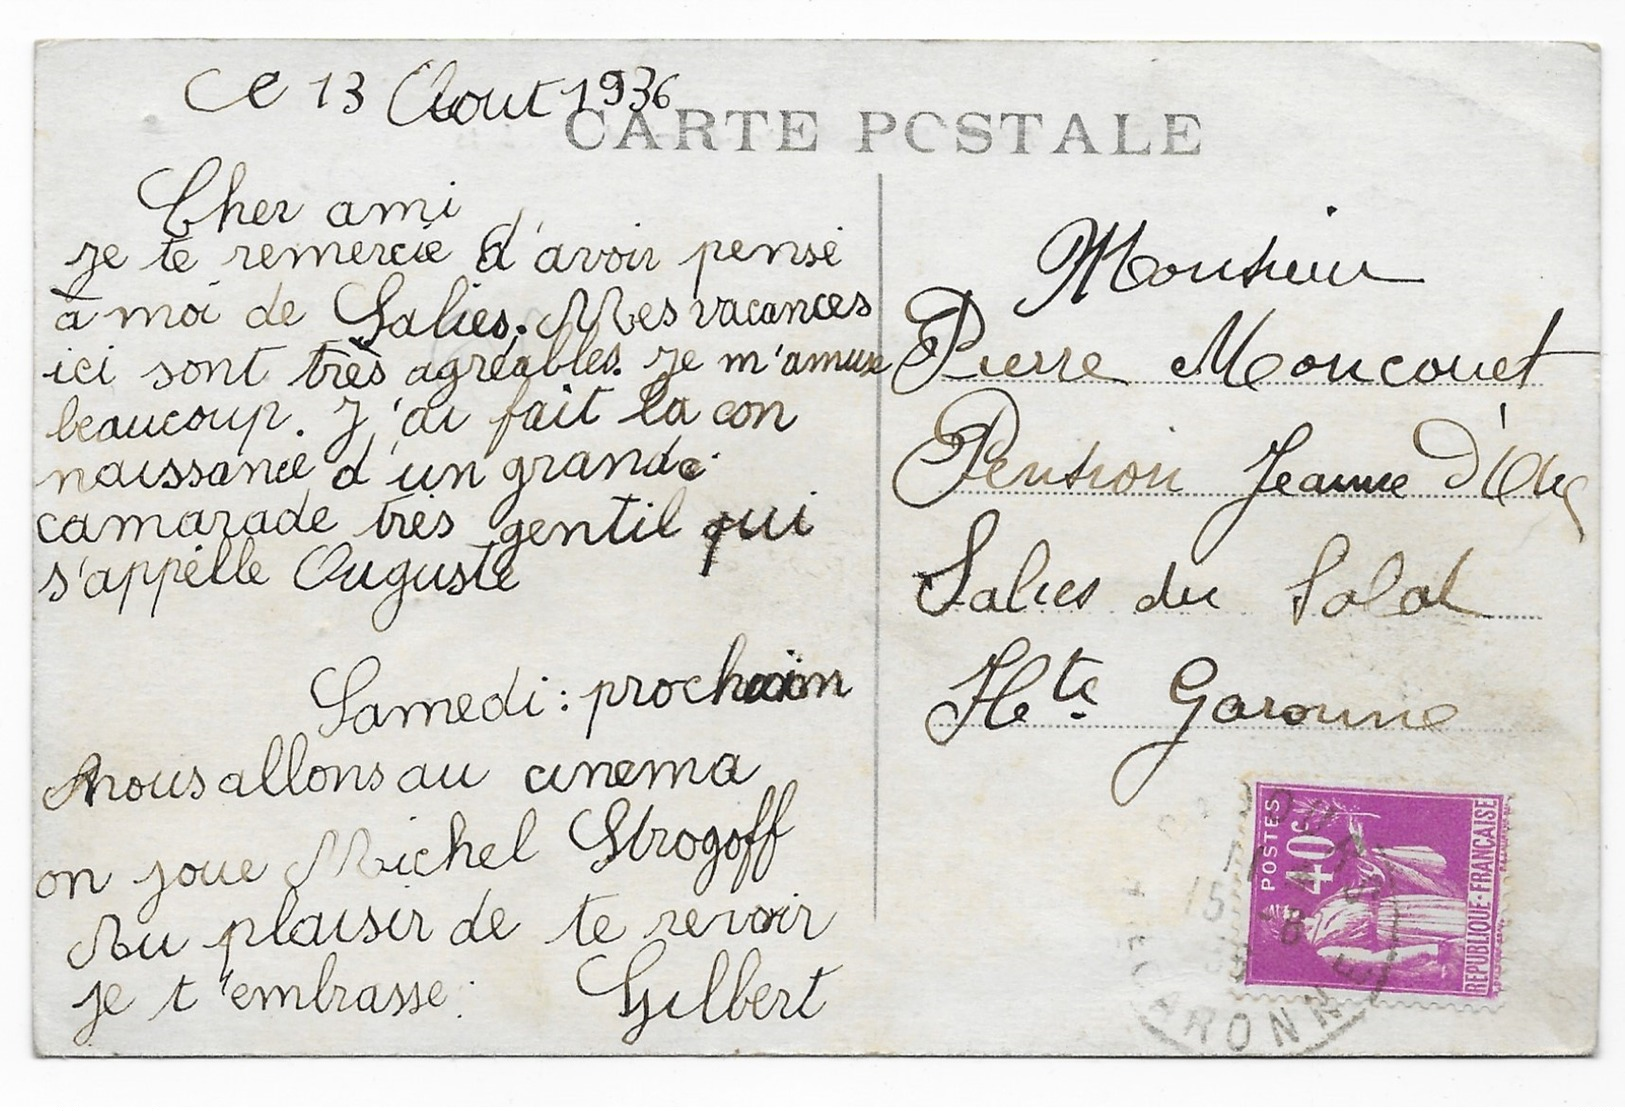 Ce 13 Aout 1936
CARTE POSTALE
Cher ami
je te remercie d'avoir pensé
à moi de Salies. Mes vacances
ici sont très agréables. Je m'amuse
beaucoup. J'ai fait la con
naissance d'un grande
camarade très gentil qui
s'appèlle Auguste
Samedi : prochain
nous allons au cinema
on joue Michel Strogoff
Au plaisir de te revoir
je t'embrasse :
Gilbert
Monsieur
Pierre Moncouet
Pension Jeanne d'Arc
Salies du Salat
Hte Garonne
POSTES
40c
REPUBLIQUE-FRANCAISE
15 -8
36
GARONNE